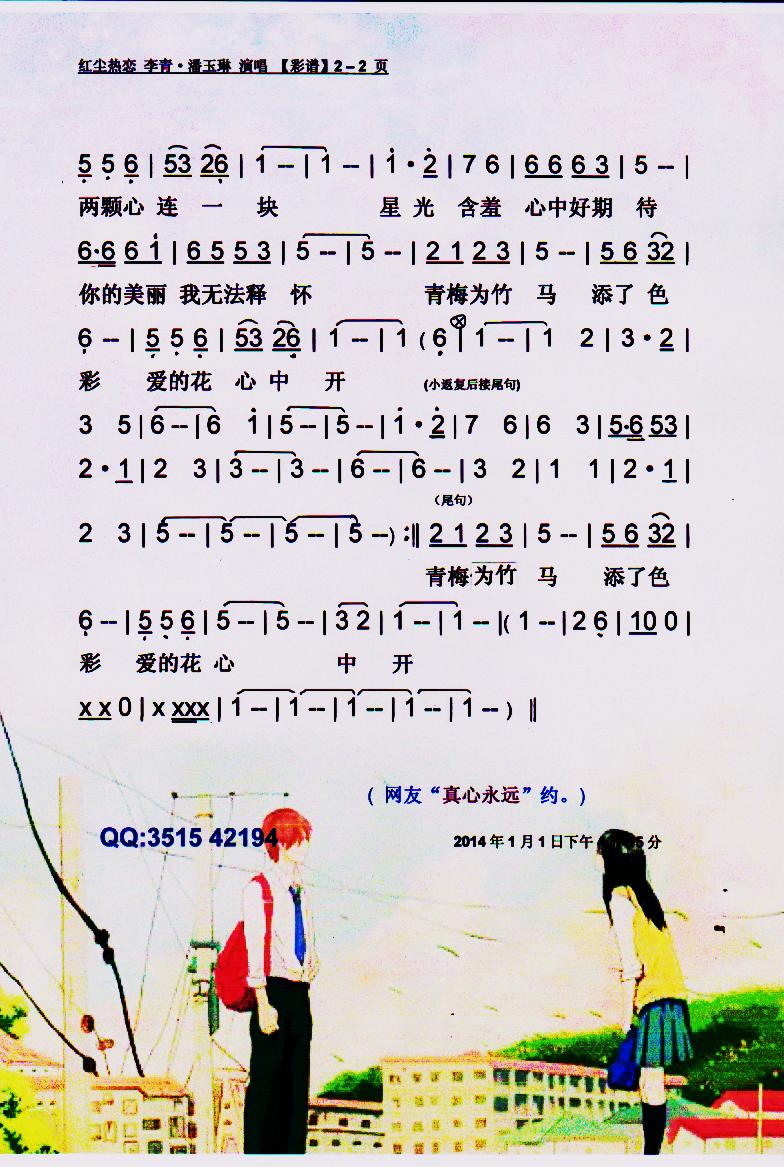 红尘热恋 李青·潘玉琳 演唱 【彩谱】2－2 页
5 5 6 | 53 26 | 1 -- | 1 -- | 1 · 2 | 7 6 | 6 6 6 3 | 5 -- |
两颗心 连 一 块 星 光 含羞 心中好期 待
6·6 6 1 | 6 5 5 3 | 5 -- | 5 -- | 2 1 2 3 | 5 -- | 5 6 32 |
你的美丽 我无法释 怀 青梅为竹 马 添了 色
6 -- | 5 5 6 | 53 26 | 1 -- | 1 ( 6 | 1 -- | 1 2 | 3 · 2 |
彩 爱的花 心 中 开 (小返复后接尾句)
3 5 | 6 -- | 6 1 | 5 -- | 5 -- | 1 · 2 | 7 6 | 6 3 | 5·6 53 |
2 · 1 | 2 3 | 3 -- | 3 -- | 6 -- | 6 -- | 3 2 | 1 1 | 2 · 1 |
（尾句）
2 3 | 5 -- | 5 -- | 5 -- | 5 -- ) :‖ 2 1 2 3 | 5 -- | 5 6 32 |
青梅为竹 马 添了色
6 -- | 5 5 6 | 5 -- | 5 -- | 3 2 | 1 -- | 1 -- | ( 1 -- | 2 6 | 10 0 |
彩 爱的花 心 中 开
x x 0 | x xxx | 1 -- | 1 -- | 1 -- | 1 -- | 1 -- ) ‖
( 网友“真心永远”约。)
QQ:3515 42194
2014 年 1 月 1 日下午 5 分